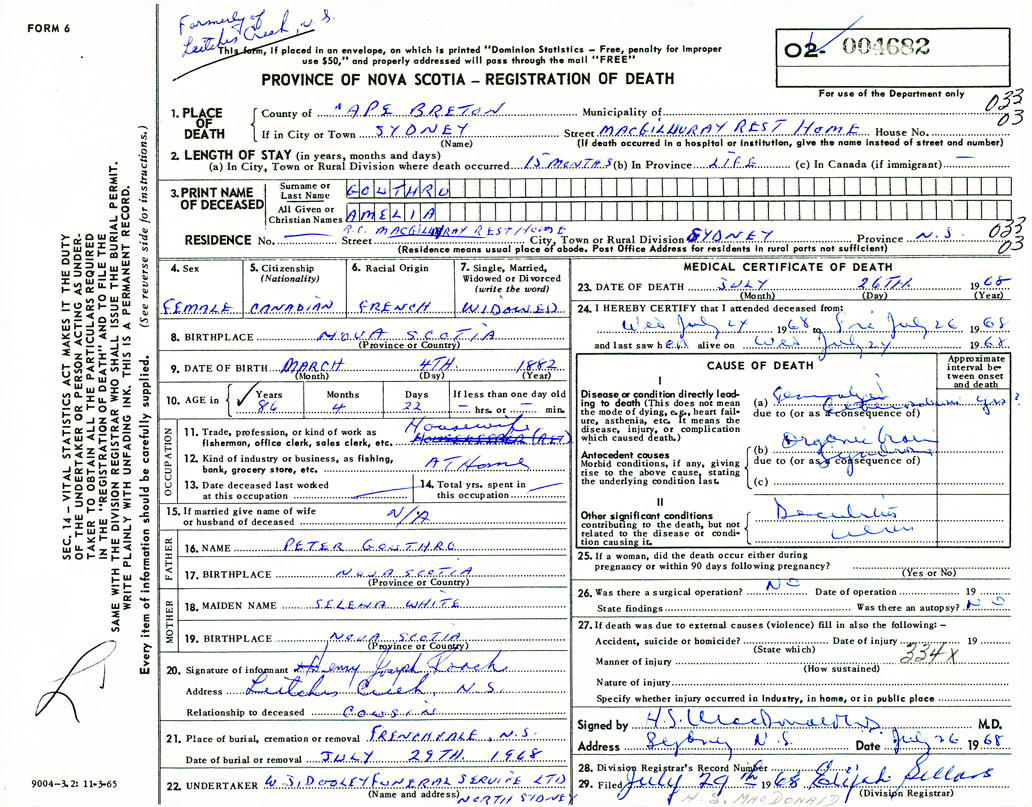 FORM 6
Formerly of
Leitches Creek, N.S.
This form, if placed in an envelope, on which is printed "Dominion Statistics – Free, penalty for improper
use $50," and properly addressed will pass through the mail "FREE"
PROVINCE OF NOVA SCOTIA – REGISTRATION OF DEATH
02- 004682
For use of the Department only
SEC. 14 – VITAL STATISTICS ACT MAKES IT THE DUTY
OF THE UNDERTAKER OR PERSON ACTING AS UNDER-
TAKER TO OBTAIN ALL THE PARTICULARS REQUIRED
IN THE "REGISTRATION OF DEATH" AND TO FILE THE
SAME WITH THE DIVISION REGISTRAR WHO SHALL ISSUE THE BURIAL PERMIT.
WRITE PLAINLY WITH UNFADING INK. THIS IS A PERMANENT RECORD.
Every item of information should be carefully supplied. (See reverse side for instructions.)
1. PLACE OF DEATH
County of CAPE BRETON Municipality of 033 03
If in City or Town SYDNEY Street MACGILLIVRAY REST HOME House No.
(Name) (If death occurred in a hospital or institution, give the name instead of street and number)
2. LENGTH OF STAY (in years, months and days)
(a) In City, Town or Rural Division where death occurred 15 MONTHS (b) In Province LIFE (c) In Canada (if immigrant) —
3. PRINT NAME OF DECEASED
Surname or Last Name GOUTHRO
All Given or Christian Names AMELIA
R.C. MACGILLIVRAY REST HOME
RESIDENCE No. Street City, Town or Rural Division SYDNEY Province N.S. 033 03
(Residence means usual place of abode. Post Office Address for residents in rural parts not sufficient)
4. Sex
FEMALE
5. Citizenship (Nationality)
CANADIAN
6. Racial Origin
FRENCH
7. Single, Married, Widowed or Divorced (write the word)
WIDOWED
8. BIRTHPLACE NOVA SCOTIA
(Province or Country)
9. DATE OF BIRTH MARCH 4TH. 1882
(Month) (Day) (Year)
10. AGE in Years 86 Months 4 Days 22 If less than one day old – hrs. or – min.
OCCUPATION
11. Trade, profession, or kind of work as fisherman, office clerk, sales clerk, etc. Housewife
HOUSEKEEPER (RET)
12. Kind of industry or business, as fishing, bank, grocery store, etc. AT Home
13. Date deceased last worked at this occupation
14. Total yrs. spent in this occupation
15. If married give name of wife or husband of deceased N/A
FATHER
16. NAME PETER GOUTHRO
17. BIRTHPLACE NOVA SCOTIA
(Province or Country)
MOTHER
18. MAIDEN NAME SELENA WHITE
19. BIRTHPLACE NOVA SCOTIA
(Province or Country)
20. Signature of informant Henry Joseph Roach
Address Leitches Creek, N.S.
Relationship to deceased COUSIN
21. Place of burial, cremation or removal FRENCHVALE, N.S.
Date of burial or removal JULY 29TH. 1968
22. UNDERTAKER W.J. DOOLEY FUNERAL SERVICE LTD
(Name and address) NORTH SYDNEY
9004–3.2: 11-3-65
MEDICAL CERTIFICATE OF DEATH
23. DATE OF DEATH JULY 26TH. 1968
(Month) (Day) (Year)
24. I HEREBY CERTIFY that I attended deceased from:
Wed July 24 1968 to Fri July 26 1968
and last saw her alive on Wed July 24 1968.
CAUSE OF DEATH
Approximate interval between onset and death
I
Disease or condition directly leading to death (This does not mean the mode of dying, e.g., heart failure, asthenia, etc. it means the disease, injury, or complication which caused death.)
(a) Generalized yrs?
due to (or as a consequence of)
Antecedent causes
Morbid conditions, if any, giving rise to the above cause, stating the underlying condition last.
(b) Organic brain syndrome
due to (or as a consequence of)
(c)
II
Other significant conditions contributing to the death, but not related to the disease or condition causing it.
Decubitus ulcers
25. If a woman, did the death occur either during pregnancy or within 90 days following pregnancy?
(Yes or No)
26. Was there a surgical operation? NO Date of operation 19
State findings Was there an autopsy? NO
27. If death was due to external causes (violence) fill in also the following: –
Accident, suicide or homicide? Date of injury 19
(State which)
334X
Manner of injury
(How sustained)
Nature of injury
Specify whether injury occurred in industry, in home, or in public place
Signed by H.S. MacDonald M.D.
Address Sydney N.S. Date July 26 1968
28. Division Registrar's Record Number
29. Filed July 29th 1968 Elijah Sellars
(Division Registrar)
H. S. MACDONALD